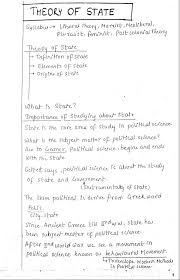 THEORY OF STATE
Syllabus → Liberal Theory, Marxist, Neoliberal,
Pluralist, feminist, Post colonial theory
Theory of State
→ Definition of State
→ Elements of State
→ Origin of State
What is State?
Importance of studying about State
State is the core area of study in political science
What is the subject matter of political science?
Acc to Garner, political science begins and ends
with the state
Gettel says, political science is about the study
of state and Government
(Instrumentality of State)
The term political is derived from Greek word
Polis
City state
Since Ancient Greece till state
been subject matter of political science
After was a movement in
political science known as behavioural Movement.
→ Modern Methods
in Political Science